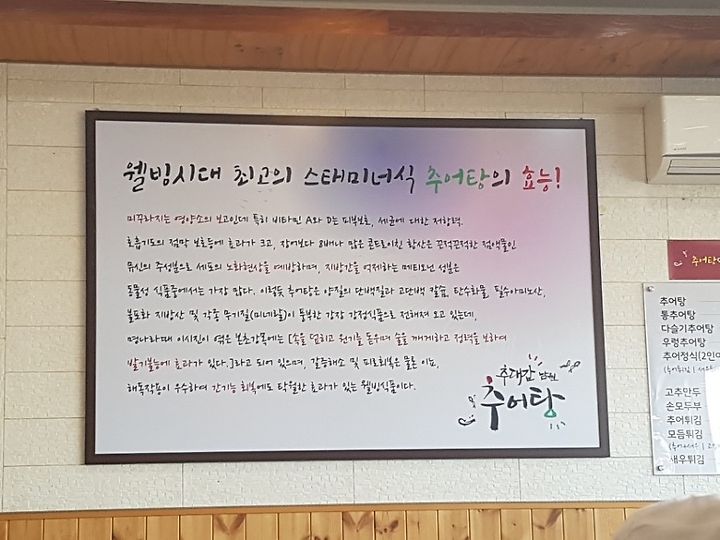 웰빙시대 최고의 스태미너식 추어탕의 효능!
미꾸라지는 영양소의 보고인데 특히 비타민 A와 D는 피부보호, 세균에 대한 저항력.
호흡기도의 점막 보호등에 효과가 크고, 장어보다 8배나 많은 콘드로이친 황산은 끈적끈적한 점액물인
뮤신의 주성분으로 세포의 노화현상을 예방하며, 지방간을 억제하는 메티오닌 성분은
동물성 식품중에서는 가장 많다. 이렇듯 추어탕은 양질의 단백질과 고단백 칼슘, 탄수화물, 필수아미노산,
불포화 지방산 및 각종 무기질(미네랄)이 풍부한 강장 강정식품으로 전해져 오고 있는데,
명나라때 이시진이 엮은 본초강목에는 [속을 덥히고 원기를 돋우며 술을 깨게하고 정력을 보하여
발기불능에 효과가 있다.]라고 되어 있으며, 갈증해소 및 피로회복은 물론 이뇨,
해독작용이 우수하여 간기능 회복에도 탁월한 효과가 있는 웰빙식품이다.
추대감 남원
추어탕
추어탕
추어탕
통추어탕
다슬기추어탕
우렁추어탕
추어정식(2인
고추만두
손모두부
추어튀김
모듬튀김
새우튀김